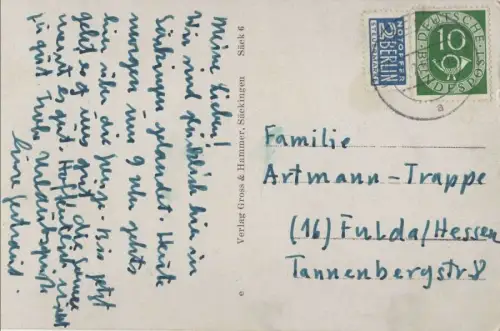 Meine Lieben!
Wir sind glücklich hier in
Säckingen gelandet. Heute
morgen um 9 Uhr gehts
hin über die Grenze. Bis jetzt
geht es uns gut, die Sonne
meint es gut. Hoffentlich nicht
zu gut. Frohe Urlaubsgrüße
Eure Gerhard.
Verlag Gross & Hammer, Säckingen Säck 6
e
NOTOPFER
2 BERLIN
STEUERMARKE
DEUTSCHE BUNDESPOST
10
a
Familie
Artmann-Trappe
(16) Fulda/Hessen
Tannenbergstr 8